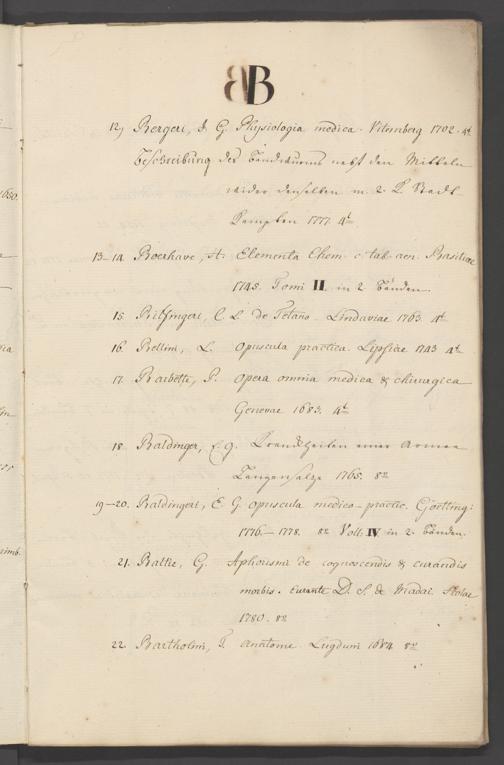 B
12) Bergeri, J. G. Physiologia medica. Vitemberg 1702. 4t
Beschreibung des Bandwurms nebst den Mitteln
wider denselben m. 2. K. Stadt
Kempten 1777. 4t
13-14. Boerhave, H. Elementa Chem. c. tab. aen. Basileae
1745. Tomi II. in 2 Bänden.
15. Bilfingeri, C. L. de Tetano. Lindaviae 1763. 4t
16. Bellini, L. opuscula practica. Lipsiae 1743 4t
17. Barbette, P. opera omnia medica & chirurgica
Genevae 1683. 4t
18. Baldinger, E. G. Krankheiten einer Armee
Langensalze 1765. 8°
19-20. Baldingeri, E. G. opuscula medico-practic. Goetting:
1776.-1778. 8° Voll. IV. in 2. Bänden.
21. Battie, G. Aphorismi de cognoscendis & curandis
morbis. curante D. S. de Madai. Halae
1780. 8°
22. Bartholini, T. anatome. Lugduni 1684. 8°
1650.